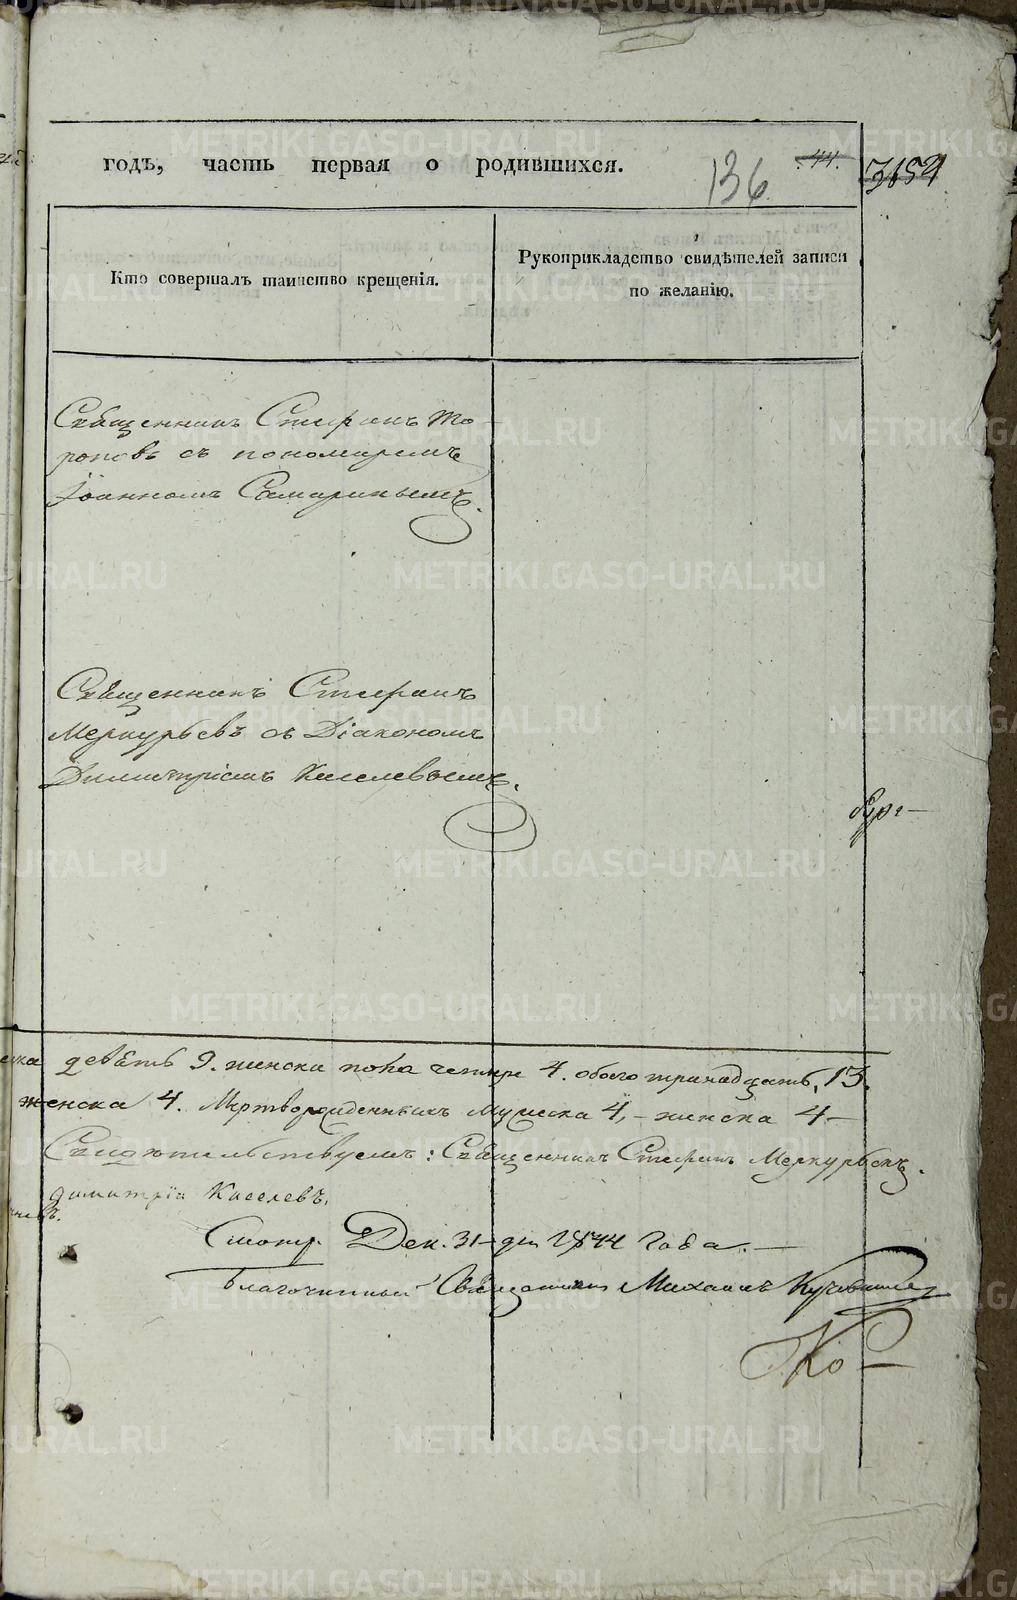 годъ, часть первая о родившихся.
136
44.
Кто совершалъ таинство крещенія.
Рукоприкладство свидѣтелей записи
по желанію.
Священникъ Стефанъ То-
роповъ съ пономаремъ
Іоанномъ Самаринымъ.
Священникъ Стефанъ
Меркурьевъ съ Діакономъ
Димитріемъ Киселевымъ.
девять 9. женска пола четыре 4. обоего тринадцать, 13.
женска 4. Мертворожденныхъ Мужеска 4, – женска 4 –
Свидѣтельствуемъ: Священникъ Стефанъ Меркурьевъ.
Димитрій Киселевъ.
Смотр. Дек. 31 – дня 1844 Года. –
Благочинный Священникъ Михаилъ
METRIKI.GASO-URAL.RU